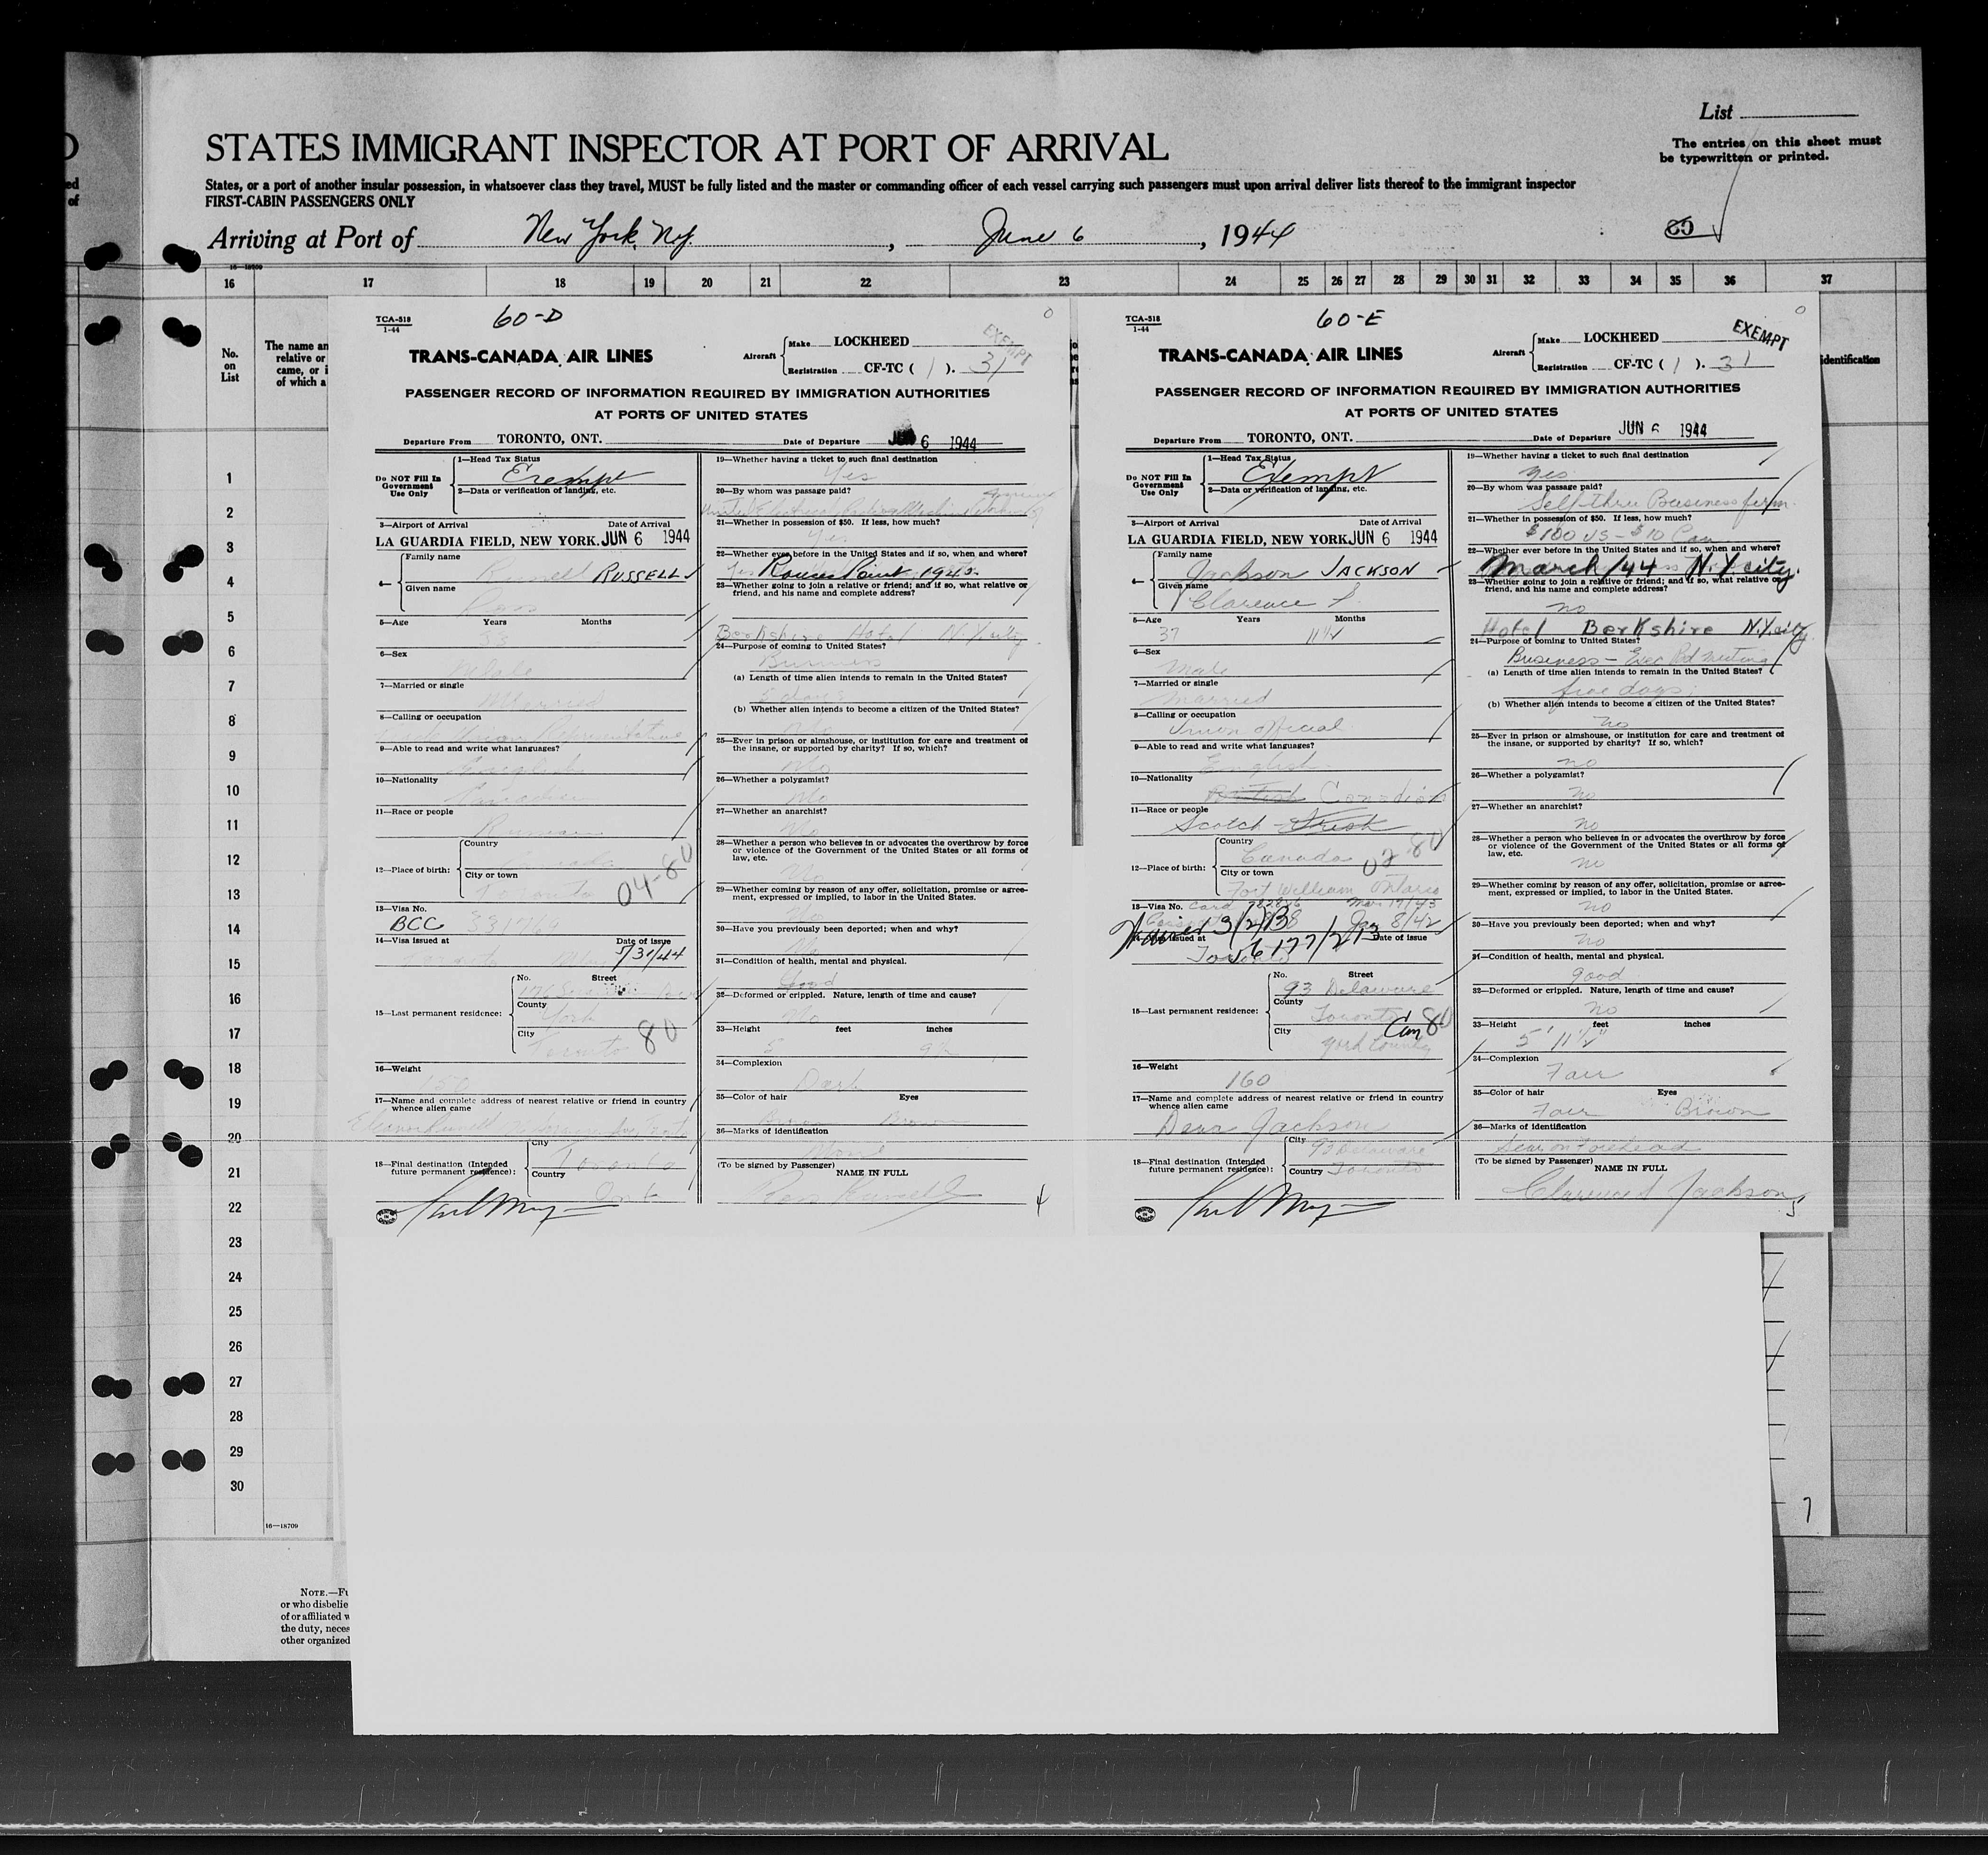 List
The entries on this sheet must
be typewritten or printed.
STATES IMMIGRANT INSPECTOR AT PORT OF ARRIVAL
States, or a port of another insular possession, in whatsoever class they travel, MUST be fully listed and the master or commanding officer of each vessel carrying such passengers must upon arrival deliver lists thereof to the immigrant inspector
FIRST-CABIN PASSENGERS ONLY
Arriving at Port of New York, N.Y. , June 6 , 1944
16 17 18 19 20 21 22 23 24 25 26 27 28 29 30 31 32 33 34 35 36 37
No.
on
List
The name an
relative or
came, or i
of which a
identification
1
2
3
4
5
6
7
8
9
10
11
12
13
14
15
16
17
18
19
20
21
22
23
24
25
26
27
28
29
30
16—18709
NOTE.—Fu
or who disbelie
of or affiliated w
the duty, neces
other organized
7
TCA-518
1-44
60-D
EXEMPT
TRANS-CANADA AIR LINES
Aircraft Make LOCKHEED
Registration CF-TC ( 1 ). 31
PASSENGER RECORD OF INFORMATION REQUIRED BY IMMIGRATION AUTHORITIES
AT PORTS OF UNITED STATES
Departure From TORONTO, ONT. Date of Departure JUN 6 1944
Do NOT Fill In
Government
Use Only
1—Head Tax Status
Exempt
2—Data or verification of landing, etc.
3—Airport of Arrival Date of Arrival
LA GUARDIA FIELD, NEW YORK. JUN 6 1944
4— Family name
Russell RUSSELL
Given name
Ross
5—Age Years Months
33
6—Sex
Male
7—Married or single
Married
8—Calling or occupation
Union Representative
9—Able to read and write what languages?
English
10—Nationality
Canadian
11—Race or people
Russian
12—Place of birth: Country
Canada
City or town
Toronto
04-80
13—Visa No.
BCC 331769
14—Visa issued at Date of issue
Toronto 5/31/44
15—Last permanent residence: No. Street
176
County
York
City
Toronto 80
16—Weight
150
17—Name and complete address of nearest relative or friend in country
whence alien came
Eleanor Russell
18—Final destination (Intended
future permanent residence): City
Toronto
Country
Ont
19—Whether having a ticket to such final destination
Yes
20—By whom was passage paid?
United Electrical Radio & Machine Workers
21—Whether in possession of $50. If less, how much?
Yes
22—Whether ever before in the United States and if so, when and where?
Yes Rouses Point 1943
23—Whether going to join a relative or friend; and if so, what relative or
friend, and his name and complete address?
Berkshire Hotel N.Y. city
24—Purpose of coming to United States?
Business
(a) Length of time alien intends to remain in the United States?
5 days
(b) Whether alien intends to become a citizen of the United States?
No
25—Ever in prison or almshouse, or institution for care and treatment of
the insane, or supported by charity? If so, which?
No
26—Whether a polygamist?
No
27—Whether an anarchist?
No
28—Whether a person who believes in or advocates the overthrow by force
or violence of the Government of the United States or all forms of
law, etc.
No
29—Whether coming by reason of any offer, solicitation, promise or agree-
ment, expressed or implied, to labor in the United States.
No
30—Have you previously been deported; when and why?
No
31—Condition of health, mental and physical.
Good
32—Deformed or crippled. Nature, length of time and cause?
No
33—Height feet inches
5 9½
34—Complexion
Dark
35—Color of hair Eyes
Brown Brown
36—Marks of identification
None
(To be signed by Passenger) NAME IN FULL
Ross Russell
4
TCA-518
1-44
60-E
EXEMPT
TRANS-CANADA AIR LINES
Aircraft Make LOCKHEED
Registration CF-TC ( 1 ). 31
PASSENGER RECORD OF INFORMATION REQUIRED BY IMMIGRATION AUTHORITIES
AT PORTS OF UNITED STATES
Departure From TORONTO, ONT. Date of Departure JUN 6 1944
Do NOT Fill In
Government
Use Only
1—Head Tax Status
Exempt
2—Data or verification of landing, etc.
3—Airport of Arrival Date of Arrival
LA GUARDIA FIELD, NEW YORK JUN 6 1944
4— Family name
Jackson JACKSON
Given name
Clarence S.
5—Age Years Months
37 11½
6—Sex
Male
7—Married or single
Married
8—Calling or occupation
Union official
9—Able to read and write what languages?
English
10—Nationality
British Canadian
11—Race or people
Scotch Irish
12—Place of birth: Country
Canada
City or town
Fort William Ontario
02-80
13—Visa No. Card Mar 19/43
Jan 8/42
Waiver 3/2/13
14—Visa issued at Date of issue
Toronto 6177/213
15—Last permanent residence: No. Street
93 Delaware
County
Toronto
City Can 80
York County
16—Weight
160
17—Name and complete address of nearest relative or friend in country
whence alien came
Jackson
18—Final destination (Intended
future permanent residence): City
93 Delaware
Country Toronto
19—Whether having a ticket to such final destination
yes
20—By whom was passage paid?
Self-thru Business firm
21—Whether in possession of $50. If less, how much?
$100 US - $10 Can
22—Whether ever before in the United States and if so, when and where?
March/44 N.Y. city.
23—Whether going to join a relative or friend; and if so, what relative or
friend, and his name and complete address?
no
Hotel Berkshire N.Y. city
24—Purpose of coming to United States?
Business - Exec Bd meeting
(a) Length of time alien intends to remain in the United States?
five days
(b) Whether alien intends to become a citizen of the United States?
no
25—Ever in prison or almshouse, or institution for care and treatment of
the insane, or supported by charity? If so, which?
no
26—Whether a polygamist?
no
27—Whether an anarchist?
no
28—Whether a person who believes in or advocates the overthrow by force
or violence of the Government of the United States or all forms of
law, etc.
no
29—Whether coming by reason of any offer, solicitation, promise or agree-
ment, expressed or implied, to labor in the United States.
no
30—Have you previously been deported; when and why?
no
31—Condition of health, mental and physical.
good
32—Deformed or crippled. Nature, length of time and cause?
no
33—Height feet inches
5' 11½"
34—Complexion
Fair
35—Color of hair Eyes
Fair Brown
36—Marks of identification
Scar on forehead
(To be signed by Passenger) NAME IN FULL
Clarence S Jackson
5